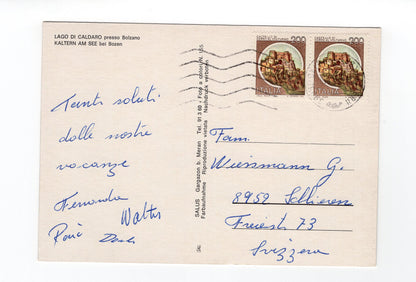 LAGO DI CALDARO presso Bolzano
KALTERN AM SEE bei Bozen
Tanti saluti
dalle nostre
vacanze
Fernanda
Walter
SALUS Gargazon b. Meran Tel. 91 3 60 • Foto a colori N. 155
Farbaufnahme Riproduzione vietata Nachdruck verboten
200
ITALIA
200
ITALIA
Fam.
Wiessmann G.
8952 Schlieren
Freiestr 73
Svizzera